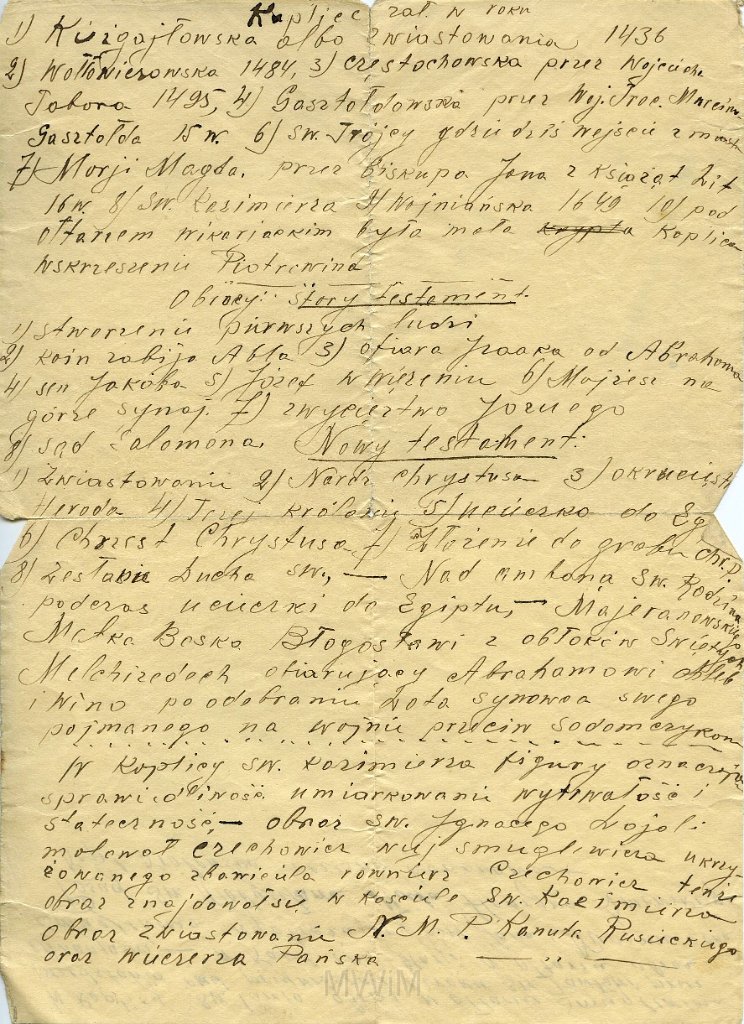 Kaplice zał. w roku
1) Kieżgajłowska albo zwiastowania 1436
2) Wołłowiczowska 1484, 3) częstochowska przez Wojciecha
Tabora 1495, 4) Gasztołdowska przez Woj. Troc. Marcina
Gasztołda 15 w. 6) św. Trójcy gdzie dziś wejście z miasta
7) Marji Magda. przez biskupa Jana z książąt Lit
16 w. 8) św. Kazimierza 9) Wojniańska 1649 10) pod
ołtarzem wikarjackim była mała krypta Kaplica
wskrzeszenie Piotrowina
Obrazy: Stary testament.
1) stworzenie pierwszych ludzi
2) kain zabija Abla 3) ofiara Izaaka od Abrahama
4) sen Jakóba 5) Józef w więzieniu 6) Mojżesz na
górze Synaj. 7) zwycięztwo Jozuego
8) sąd Salomona. Nowy testament:
1) Zwiastowanie 2) Narodz chrystusa 3) okrucieńst
Heroda 4) Trzej królowie 5) ucieczka do Eg
6) Chrzest Chrystusa, 7) Złożenie do grobu chr. P.
8) Zesłanie Ducha św., — Nad amboną św. Rodzina
podczas ucieczki do Egiptu, — Majeranowskiego
Matka Boska Błogosławi z obłoków Świętych
Melchizedech ofiarujący Abrahamowi chleb
i wino po odebraniu Lota synowca swego
pojmanego na wojnie przeciw sodomczykom
W kaplicy św. Kazimierza figury oznaczają
sprawiedliwość umiarkowanie wytrwałość i
stateczność, — obraz św. Ignacego Lojoli
malował czechowicz wuj smuglewicza ukrzy-
żowanego zbawiciela również Czechowicz tenże
obraz znajdował się w kościele św. Kazimierza
obraz zwiastowanie N. M. P. Kanuta Rusieckiego
oraz wieczerza Pańska — „ —
MWiM